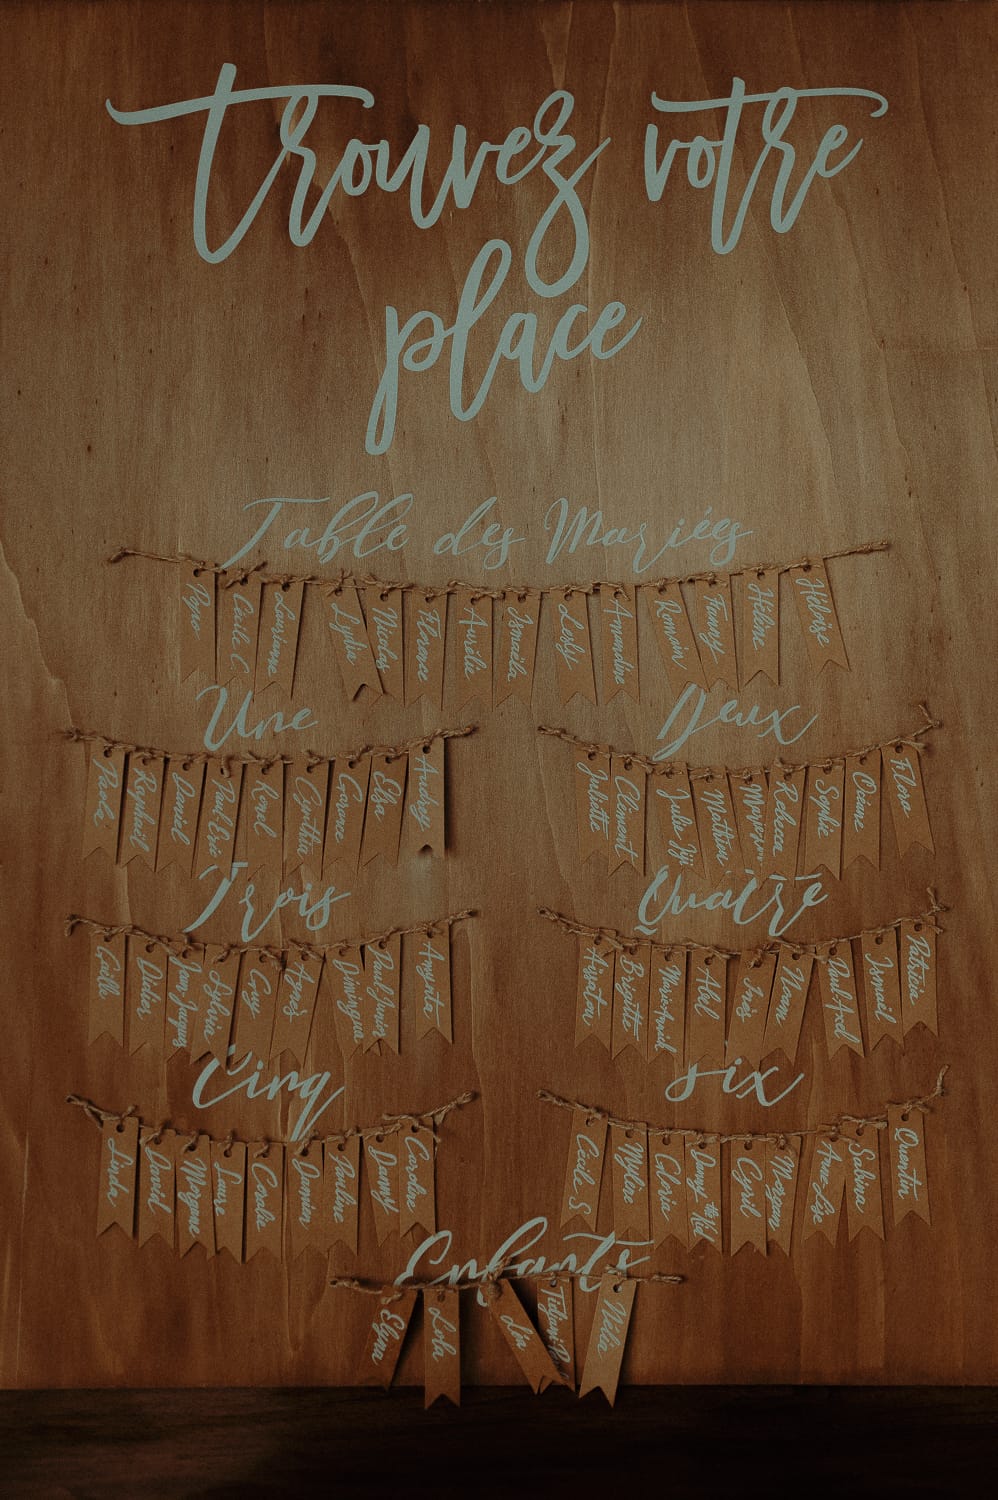 trouvez votre
place
Table des Mariées
Pepe Cécile C. Laurianne Lydia Nicolas Florence Aurélie Ismaïla Lesly Amandine Romain Fanny Hélène Héloïse
Une
Paola Raphaël Daniel Paul-Eric Cynthia Elsa Audrey
Deux
Juliette Clément Julie Jiji Mathieu Rebecca Sophie Océane Flora
Trois
Dulce Jean-Jacques Sylvie Guy Agnès Dominique Paul Junior Augusta
Quatre
Brigitte Marie-Annick Abel Inès Noam Paul-Axel Ismaïl Patricia
Cinq
Linda David Morgane Laure Coralie Damien Pauline Danny Caroline
Six
Cécile S. Mylène Gloria Dany the Kid Cyril Morgan Anne-Lise Sabine Quentin
Enfants
Elyna Lola Léa Nélia